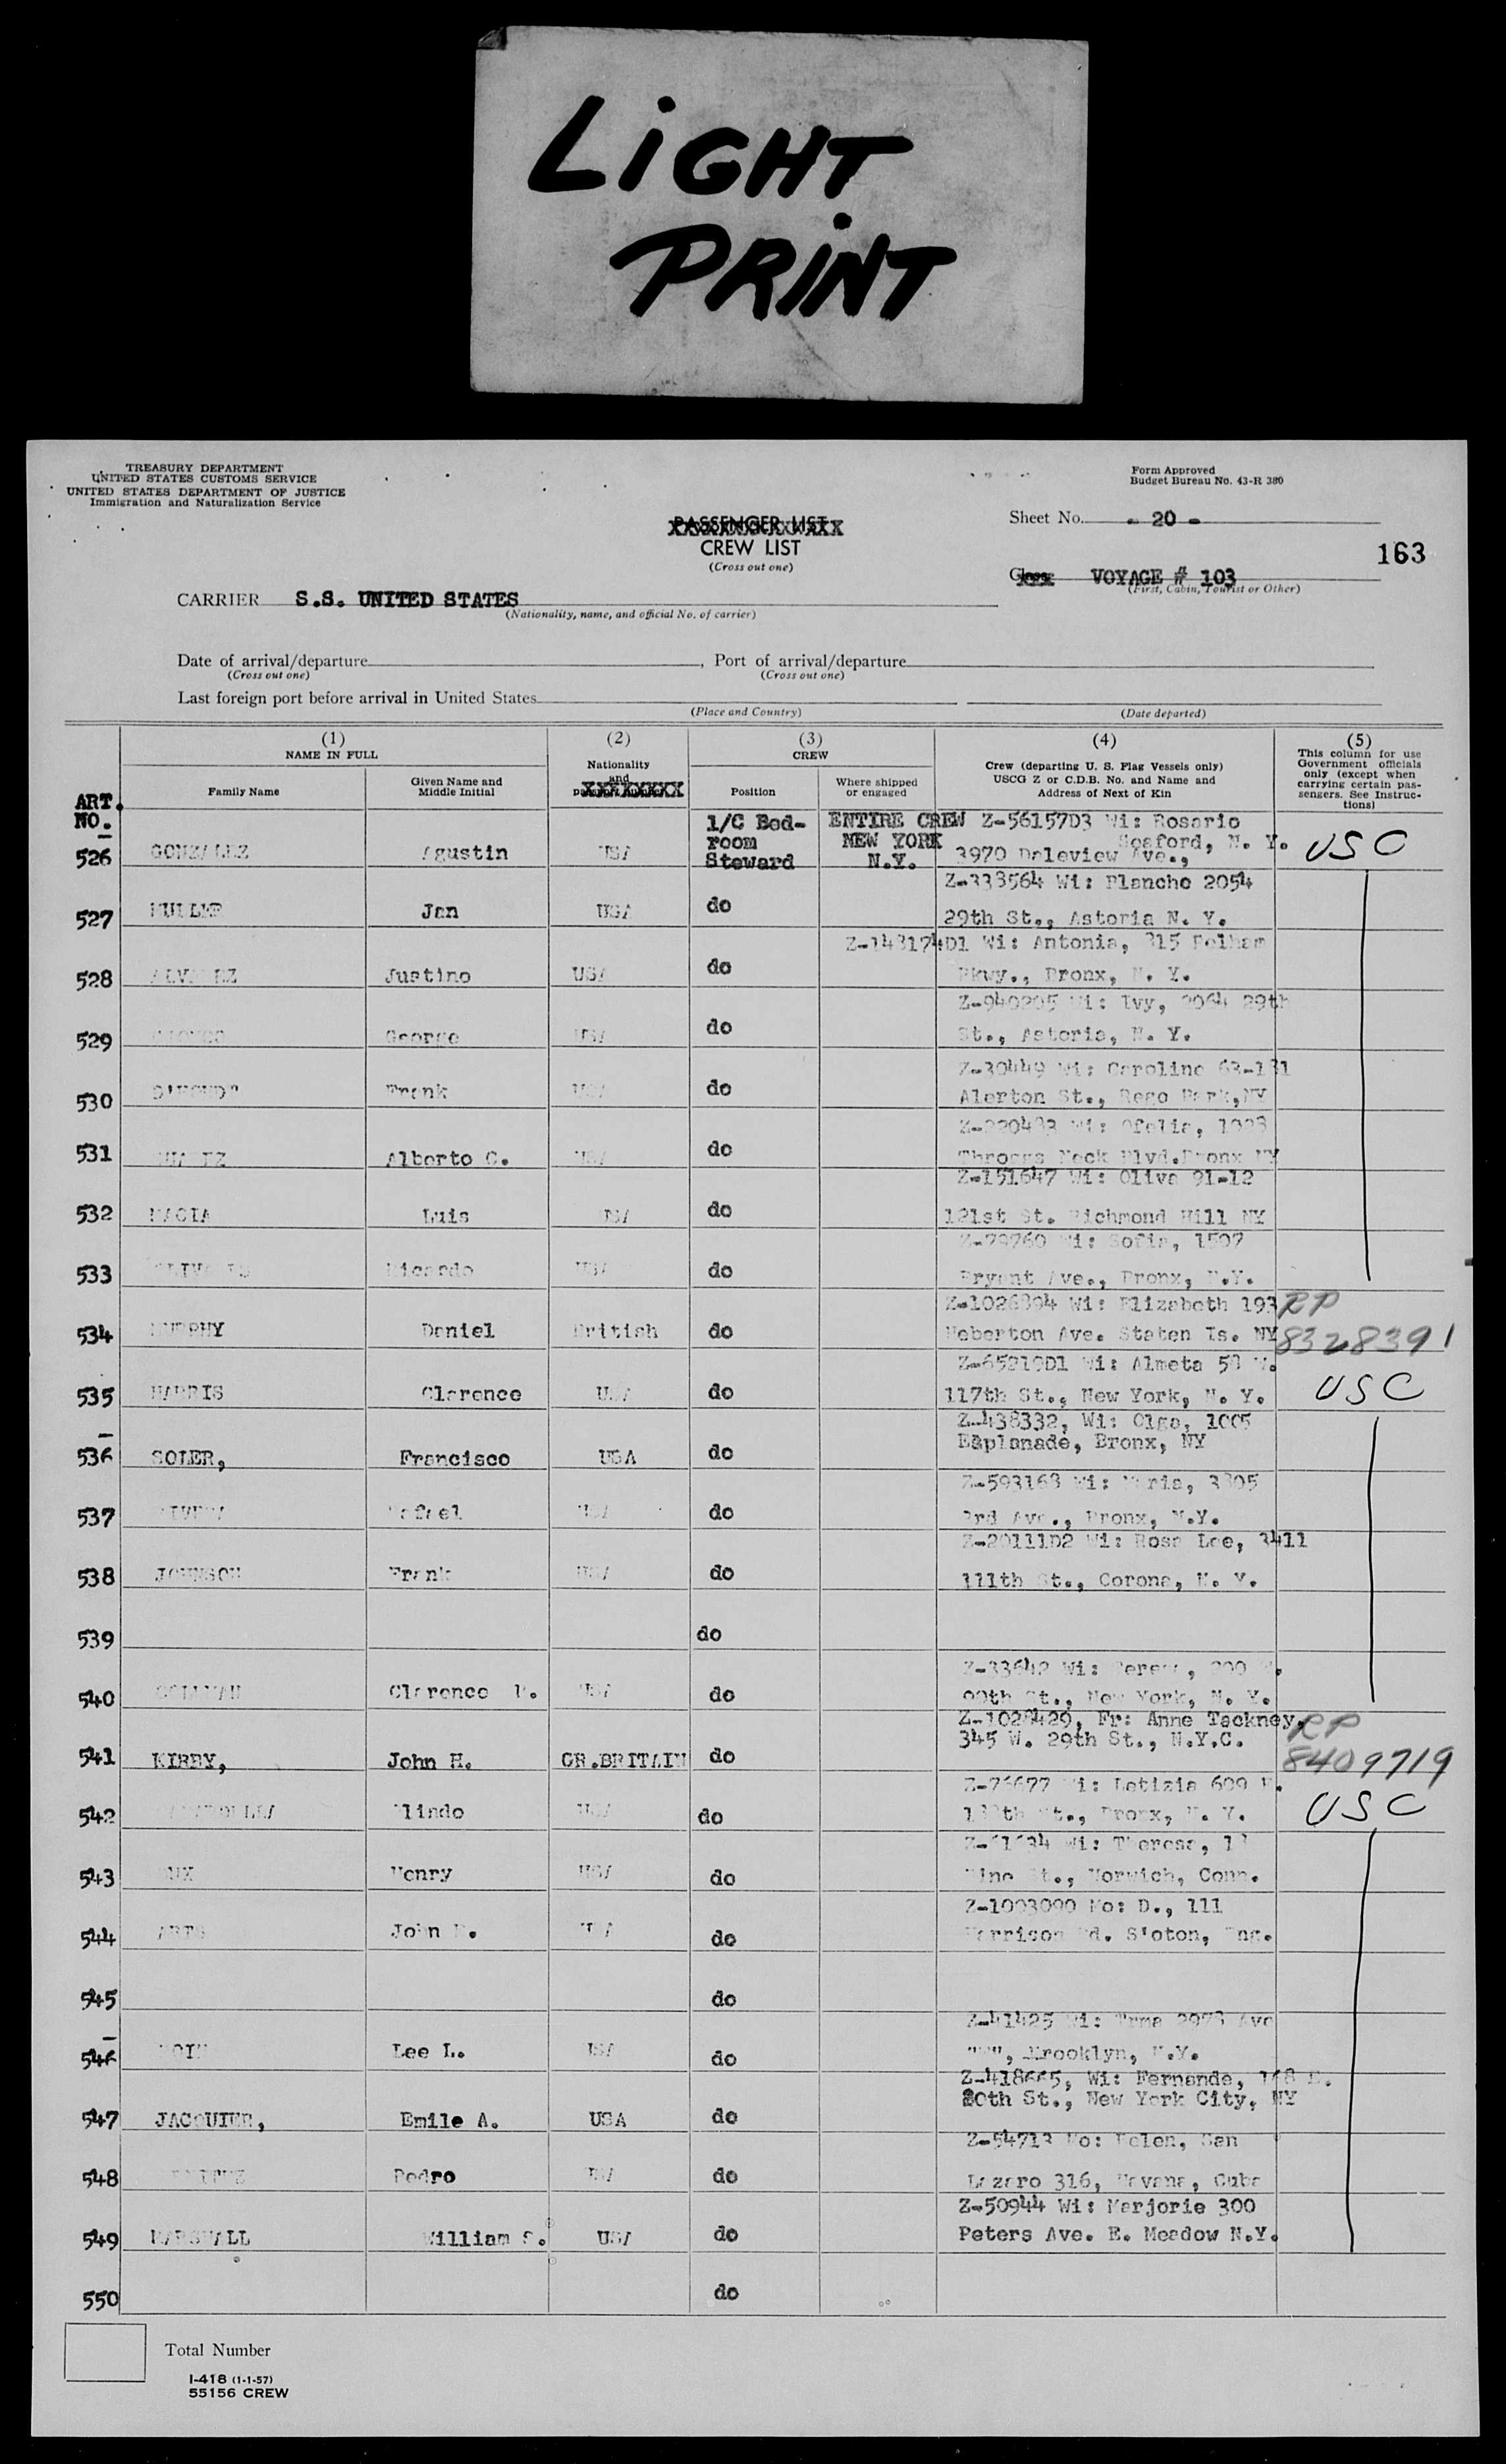 LIGHT
PRINT
TREASURY DEPARTMENT
UNITED STATES CUSTOMS SERVICE
UNITED STATES DEPARTMENT OF JUSTICE
Immigration and Naturalization Service
Form Approved
Budget Bureau No. 43-R 380
PASSENGER LIST
CREW LIST
(Cross out one)
Sheet No. - 20 -
163
Class VOYAGE # 103
(First, Cabin, Tourist or Other)
CARRIER S.S. UNITED STATES
(Nationality, name, and official No. of carrier)
Date of arrival/departure , Port of arrival/departure
(Cross out one) (Cross out one)
Last foreign port before arrival in United States
(Place and Country) (Date departed)
(1) (2) (3) (4) (5)
NAME IN FULL
Nationality
and
CREW
Crew (departing U. S. Flag Vessels only)
USCG Z or C.D.B. No. and Name and
Address of Next of Kin
This column for use
Government officials
only (except when
carrying certain pas-
sengers. See Instruc-
tions)
Family Name
Given Name and
Middle Initial
Position
Where shipped
or engaged
ART.
NO.
526 GONZALEZ Agustin USA 1/C Bed-
room
Steward
ENTIRE CREW
NEW YORK
N.Y.
Z-56157D3 Wi: Rosario
Seaford, N. Y.
3970 Daleview Ave.,
USC
527 Jan USA do
Z-333564 Wi: Blanche 2054
29th St., Astoria N. Y.
528 Justino USA do
Z-143174D1 Wi: Antonia, 315 Pelham
Pkwy., Bronx, N. Y.
529 George USA do
Z-940205 Wi: Ivy, 2064 29th
St., Astoria, N. Y.
530 Frank USA do
Z-30449 Wi: Caroline 63-131
Alerton St., Rego Park,NY
531 Alberto C. USA do
Wi: Ofelia,
Throggs Neck Blvd.Bronx NY
532 MACIA Luis USA do
Z-151647 Wi: Olive 91-12
121st St. Richmond Hill NY
533 Ricardo USA do
Z-79760 Wi: Sofia, 1507
Bryant Ave., Bronx, N.Y.
534 MURPHY Daniel British do
Wi: Elizabeth 193
Heberton Ave. Staten Is. NY
RP
8328391
535 HARRIS Clarence USA do
Z-65219D1 Wi: Almeta 58 W.
117th St., New York, N. Y.
USC
536 SOLER, Francisco USA do
Z-438332, Wi: Olga, 1005
Esplanade, Bronx, NY
537 Rafael USA do
Z-593168 Wi: Maria, 3805
3rd Ave., Bronx, N.Y.
538 JOHNSON Frank USA do
Z-20111D2 Wi: Rosa Lee, 3411
111th St., Corona, N. Y.
539 do
540 Clarence USA do
Z-33642 Wi:
St., New York, N. Y.
541 KIRBY, John H. GR.BRITAIN do
Z-1028429, Fr: Anne Tackney,
345 W. 29th St., N.Y.C.
RP
8409719
542 USA do
Z-76677 Wi: Letizia 609
St., Bronx, N. Y.
USC
543 Henry USA do
Wi: Theresa,
St., Norwich, Conn.
544 John USA do
Z-1003090 Mo: D., 111
Harrison Rd. Eng.
545 do
546 Lee L. USA do
Z-41425 Wi: Ave
Brooklyn, N.Y.
547 JACQUIER, Emile A. USA do
Z-418665, Wi: Fernande, 168 E.
St., New York City, NY
548 Pedro USA do
Z-54713 Mo: Belen, San
Lazaro 316, Havana, Cuba
549 MARSHALL William S. USA do
Z-50944 Wi: Marjorie 300
Peters Ave. E. Meadow N.Y.
550 do
Total Number
I-418 (1-1-57)
55156 CREW